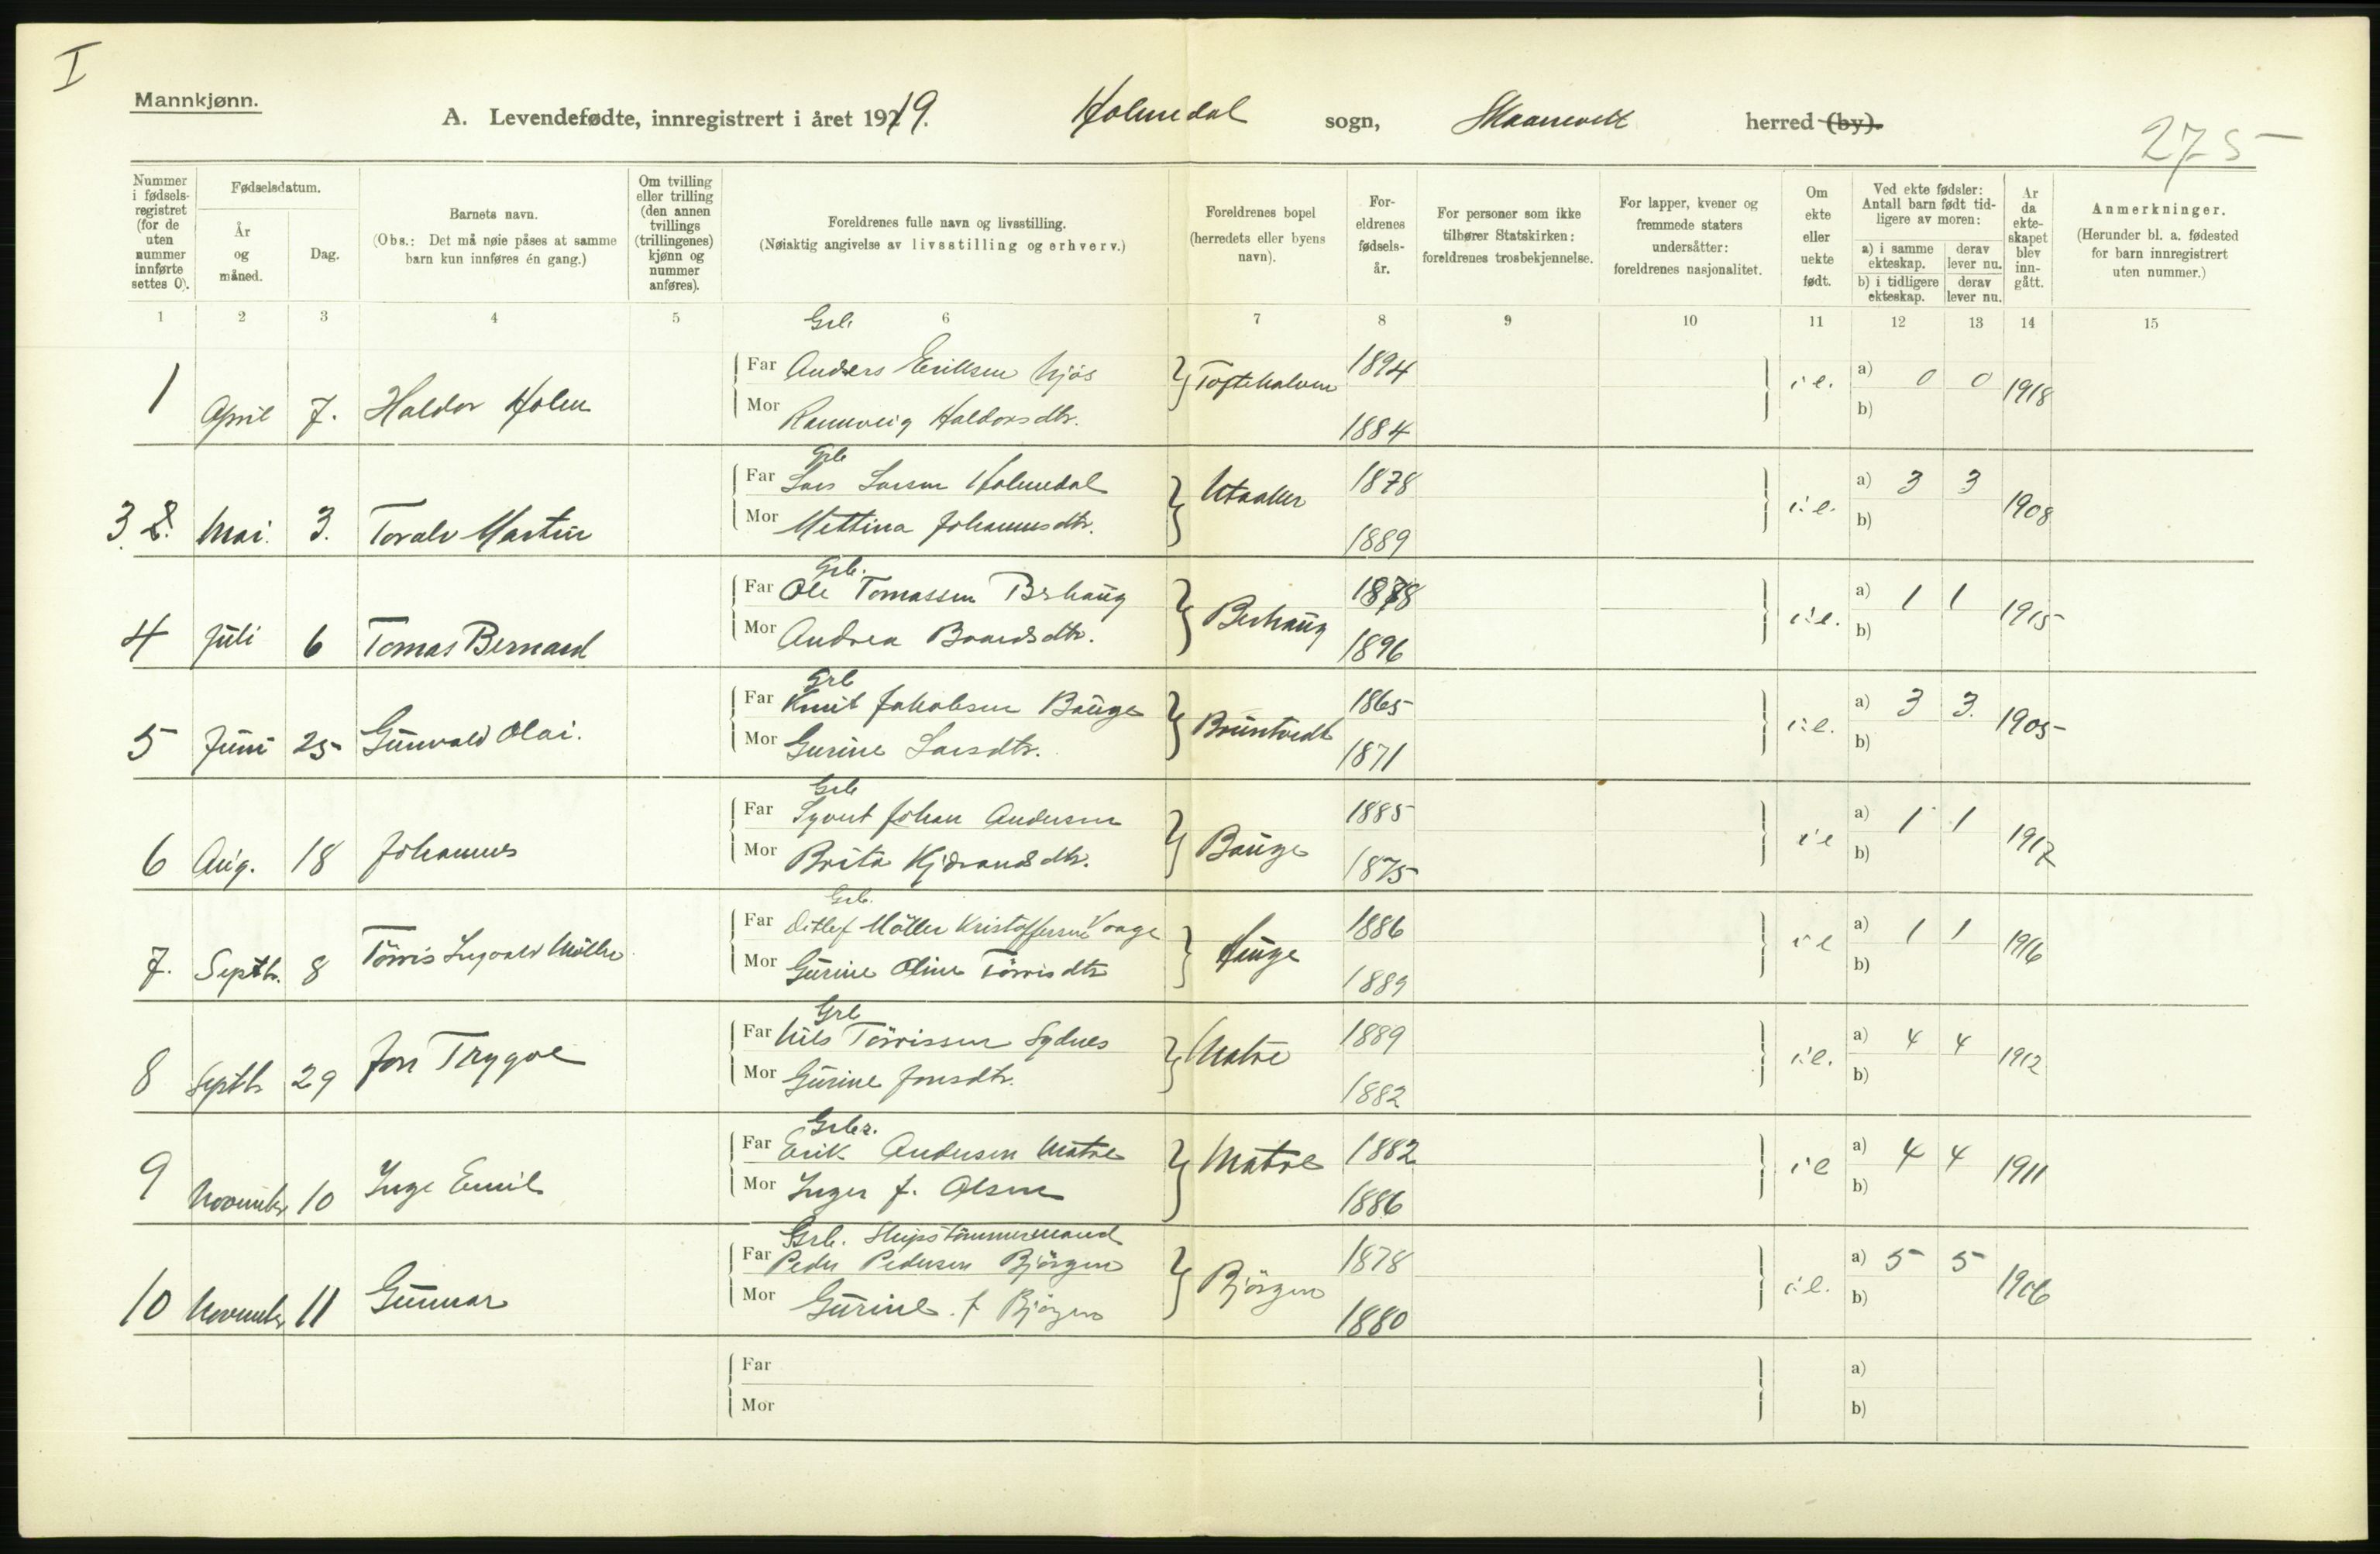 I
Mannkjønn.
A. Levendefødte, innregistrert i året 1919. Holmedal sogn, Skaanevik herred (by).
275
Nummer i fødselsregistret (for de uten nummer innførte settes 0).
Fødselsdatum.
År og måned.
Dag.
Barnets navn.
(Obs.: Det må nøie påses at samme barn kun innføres én gang.)
Om tvilling eller trilling (den annen tvillings (trillingenes) kjønn og nummer anføres).
Foreldrenes fulle navn og livsstilling.
(Nøiaktig angivelse av livsstilling og erhverv.)
Foreldrenes bopel (herredets eller byens navn).
Foreldrenes fødselsår.
For personer som ikke tilhører Statskirken: foreldrenes trosbekjennelse.
For lapper, kvener og fremmede staters undersåtter: foreldrenes nasjonalitet.
Om ekte eller uekte født.
Ved ekte fødsler: Antall barn født tidligere av moren:
a) i samme ekteskap. derav lever nu.
b) i tidligere ekteskap. derav lever nu.
År da ekteskapet blev inngått.
Anmerkninger.
(Herunder bl. a. fødested for barn innregistrert uten nummer.)
1 2 3 4 5 6 7 8 9 10 11 12 13 14 15
Grb.
1 April 7. Haldor Holm Far Anders Eriksen Mjøs Toftehalven 1894 i e. a) 0 0 1918
Mor Rannveig Haldorsdtr. 1884 b)
Grb
3 2. Mai. 3. Toralv Martin Far Lars Larsen Holmedal Utaaker 1878 i.e. a) 3 3 1908
Mor Mettina Johannesdtr. 1889 b)
Grb.
4 Juli 6 Tomas Bernard Far Ole Tomassen Berhaug Berhaug 1878 i.e. a) 1 1 1915
Mor Andrea Baardsdtr. 1896 b)
Grb
5 Juni 25 Gunvald Olai. Far Knut Jakobsen Bauge Bruntvedt 1865 i.e. a) 3 3. 1905
Mor Gurine Larsdtr. 1871 b)
Grb
6 Aug. 18 Johannes Far Syvert Johan Andersen Bauge 1885 i e a) 1 1 1917
Mor Brita Kjdrandsdtr. 1875 b)
Grb.
7. Septb. 8 Törris Ingvald Möller Far Ditlef Möller Kristoffersen Vaage Hauge 1886 i e a) 1 1 1916
Mor Gurine Oline Törrisdtr 1889 b)
Grb
8 Septb 29 Jon Trygve Far Nils Törrissen Sydnes Matre 1889 i.e. a) 4 4 1912
Mor Gurine Jonsdtr. 1882 b)
Grbr.
9 November 10 Inge Emil Far Erik Andersen Matre Matre 1882 i e a) 4 4 1911
Mor Inger f. Olsen 1886 b)
Grb. Skipstömmermand
10 November 11 Gunnar Far Peder Pedersen Bjørgen Bjørgen 1878 i.e. a) 5 5 1906
Mor Gurine f Bjørgen 1880 b)
Far a)
Mor b)